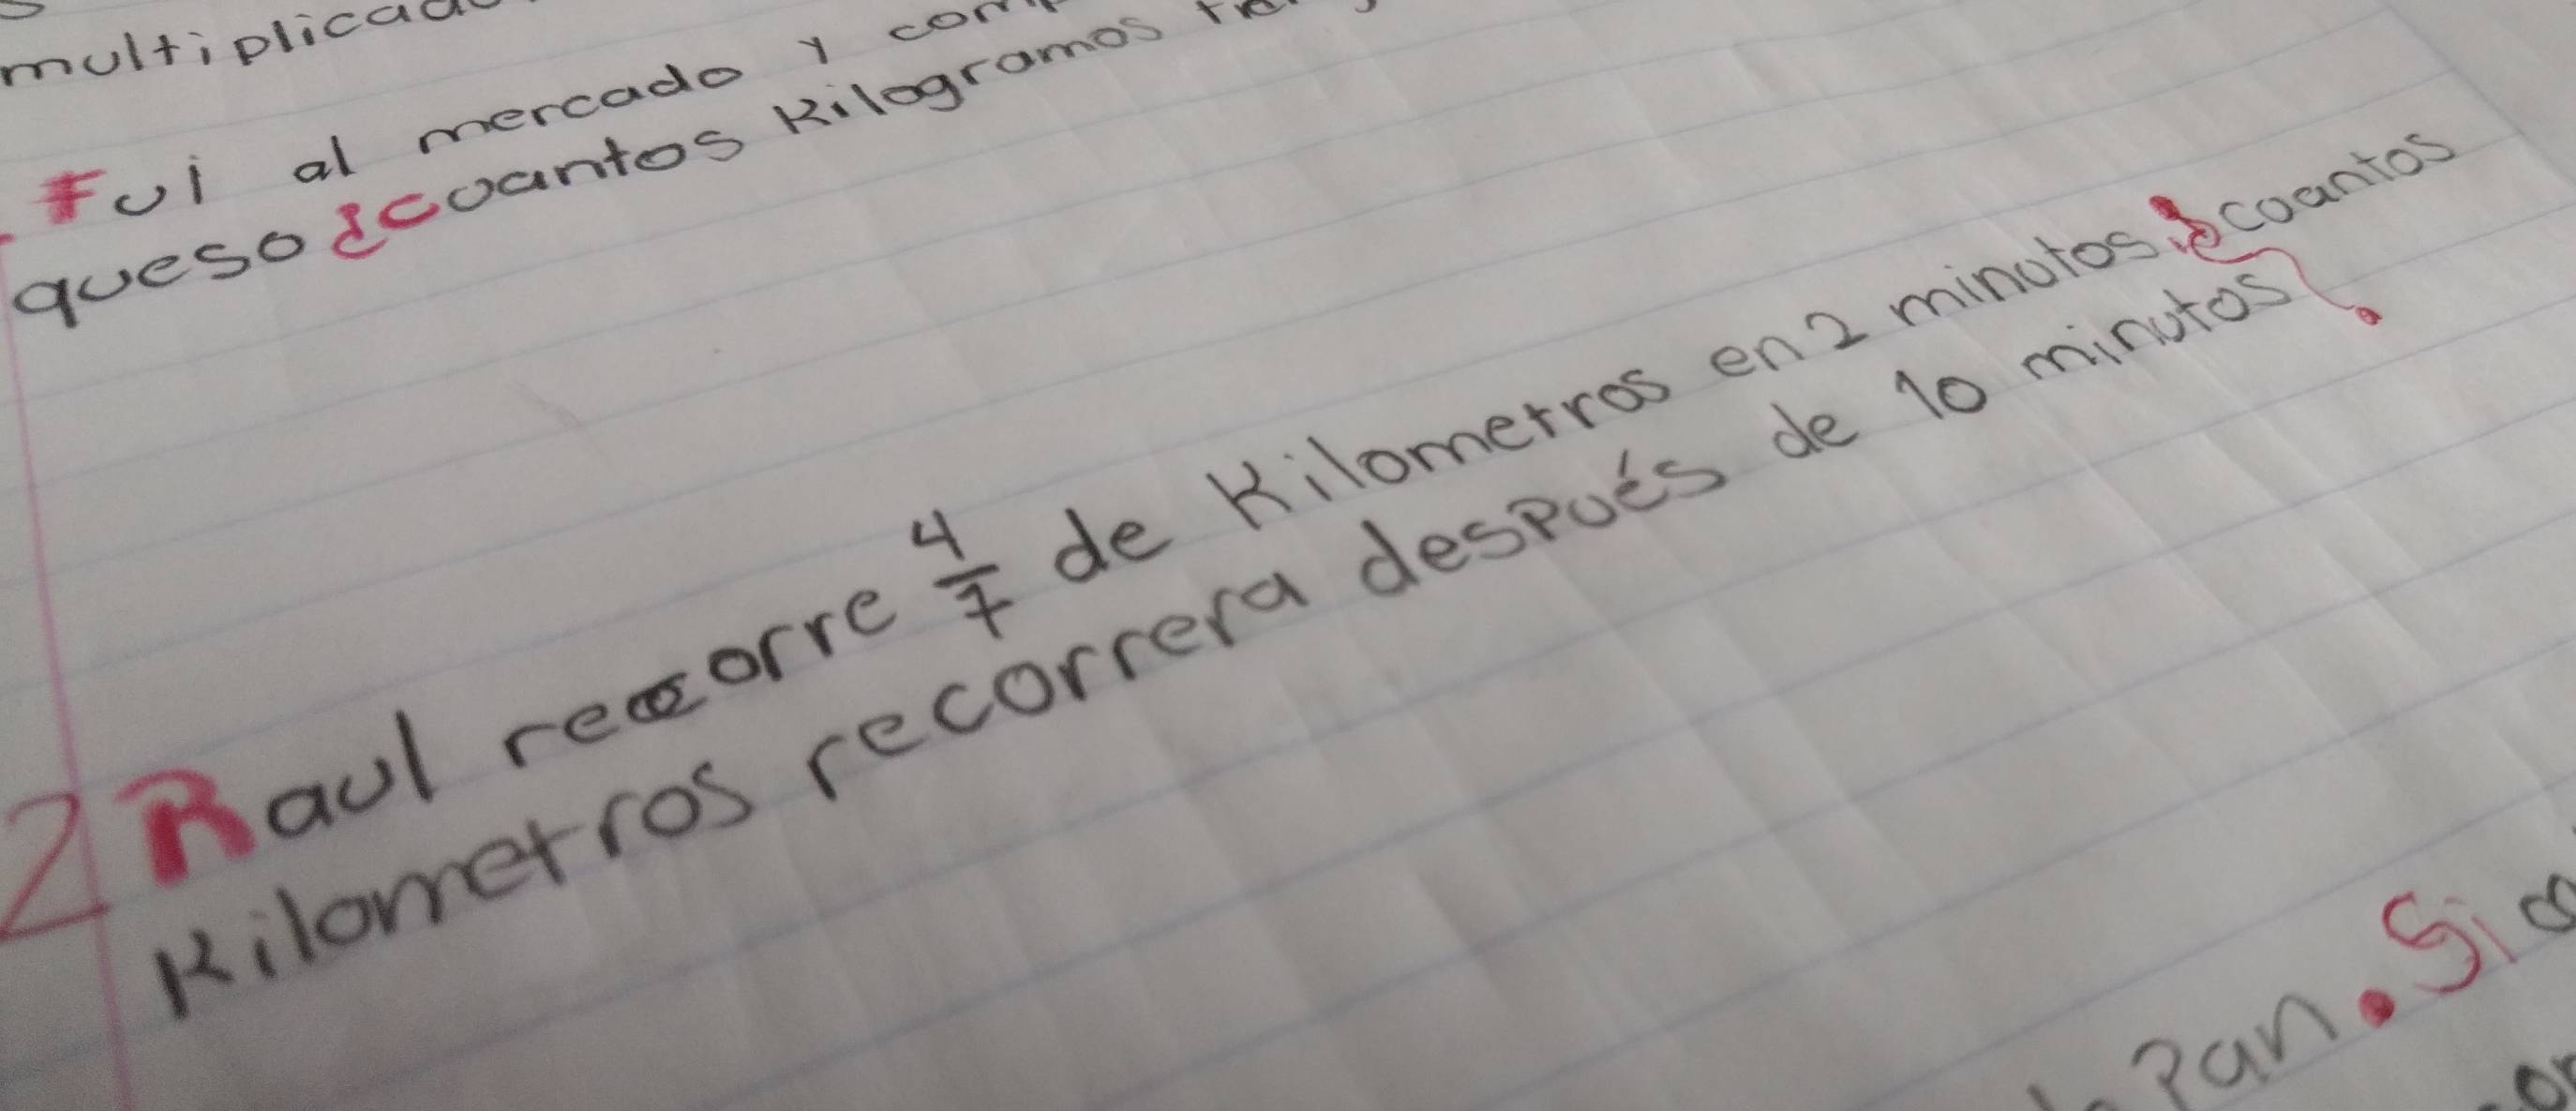 multiplicad
Fui al mercado y com
queso ¿cuantos Kilogramos
2 Raul recorre 4/7 de Kilometros en 2 minutos ¿cuantos
Kilometros recorrera después de 10 minutos?
Pan. Si